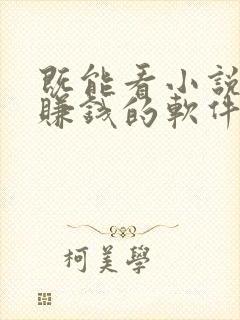 既能看小說
賺錢的軟件
柯美學